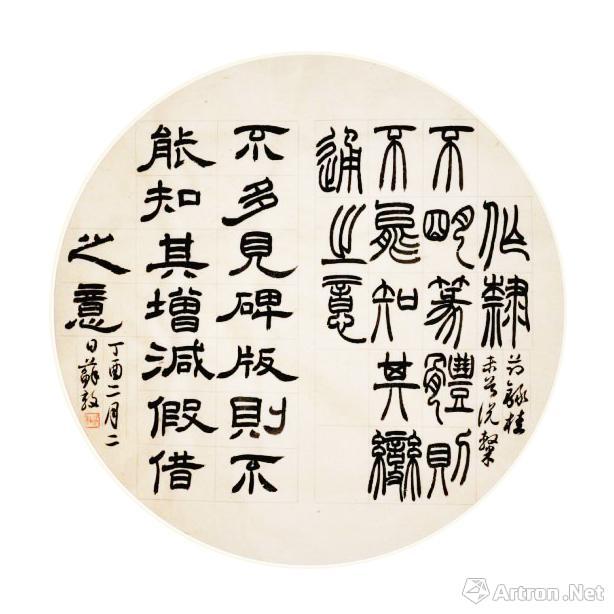 作隸
不明篆體則
不能知其變
通之意
不多見碑版則不
能知其增減假借
之意
節錄桂
未谷說
丁酉二月二
日薛
Artron.Net